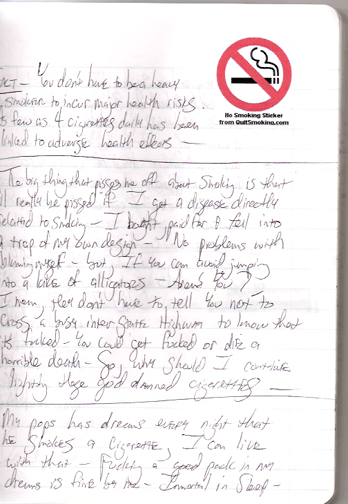 No Smoking Sticker
from QuitSmoking.com
ACT - You don't have to be a heavy
smoker to incur major health risks.
s few as 4 cigarettes daily has been
linked to adverse health effects -
The big thing that pisses me off about Smoking is that
ll really be pissed if I get a disease directly
related to smoking - I bought, paid for & fell into
a trap of my own design - No problems with
blaming myself - but, If you can avoid jumping
into a lake of alligators - Aren't You?
I mean, they don't have to tell You not to
Cross a busy inter State Highway to know that
is fucked - You could get Fucked or die a
horrible death - So, why should I continue
lighting these god damned cigarettes -
My pops has dreams every night that
he smokes a Cigarette, I can live
with that - Fucking a good pack in my
dreams is fine by me - Immortal in Sleep -